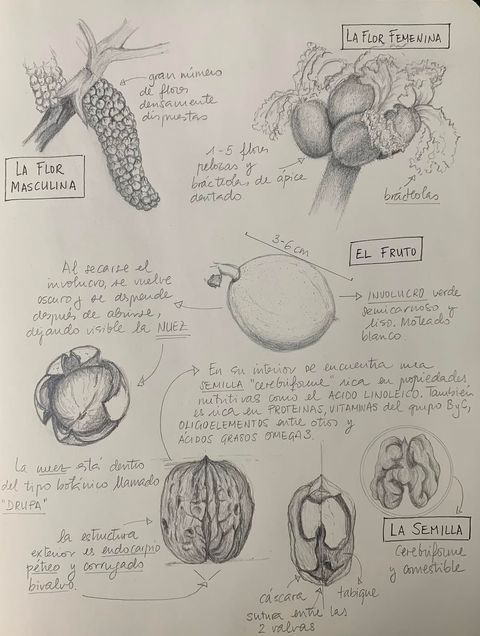 LA FLOR FEMENINA
gran número
de flores
densamente
dispuestas
LA FLOR
MASCULINA
1-5 flores
pelosas y
brácteolas de ápice
dentado
brácteolas
3-6 cm
EL FRUTO
Al secarse el
involucro, se vuelve
oscuro y se desprende
después de abrirse,
dejando visible la NUEZ
INVOLUCRO verde
semicarnoso y
liso. Moteado
blanco.
En su interior se encuentra una
SEMILLA "cerebriforme" rica en propiedades
nutritivas como el ACIDO LINOLÉICO. También
es rica en PROTEINAS, VITAMINAS del grupo B y C,
OLIGOELEMENTOS entre otros y
ÁCIDOS GRASOS OMEGA3.
La nuez está dentro
del tipo botánico llamado
"DRUPA"
la estructura
exterior es endocarpio
pétreo y corrugado
bivalvo.
LA SEMILLA
cerebriforme
y comestible
cáscara
tabique
sutura entre las
2 valvas